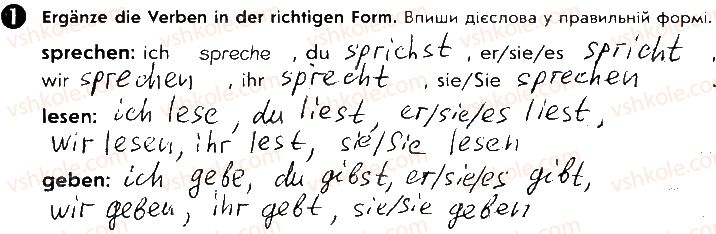 1 Ergänze die Verben in der richtigen Form. Впиши дієслова у правильній формі.
sprechen: ich spreche , du sprichst , er/sie/es spricht ,
wir sprechen , ihr sprecht , sie/Sie sprechen .
lesen: ich lese, du liest, er/sie/es liest,
wir lesen, ihr lest, sie/Sie lesen
geben: ich gebe, du gibst, er/sie/es gibt,
wir geben, ihr gebt, sie/Sie geben